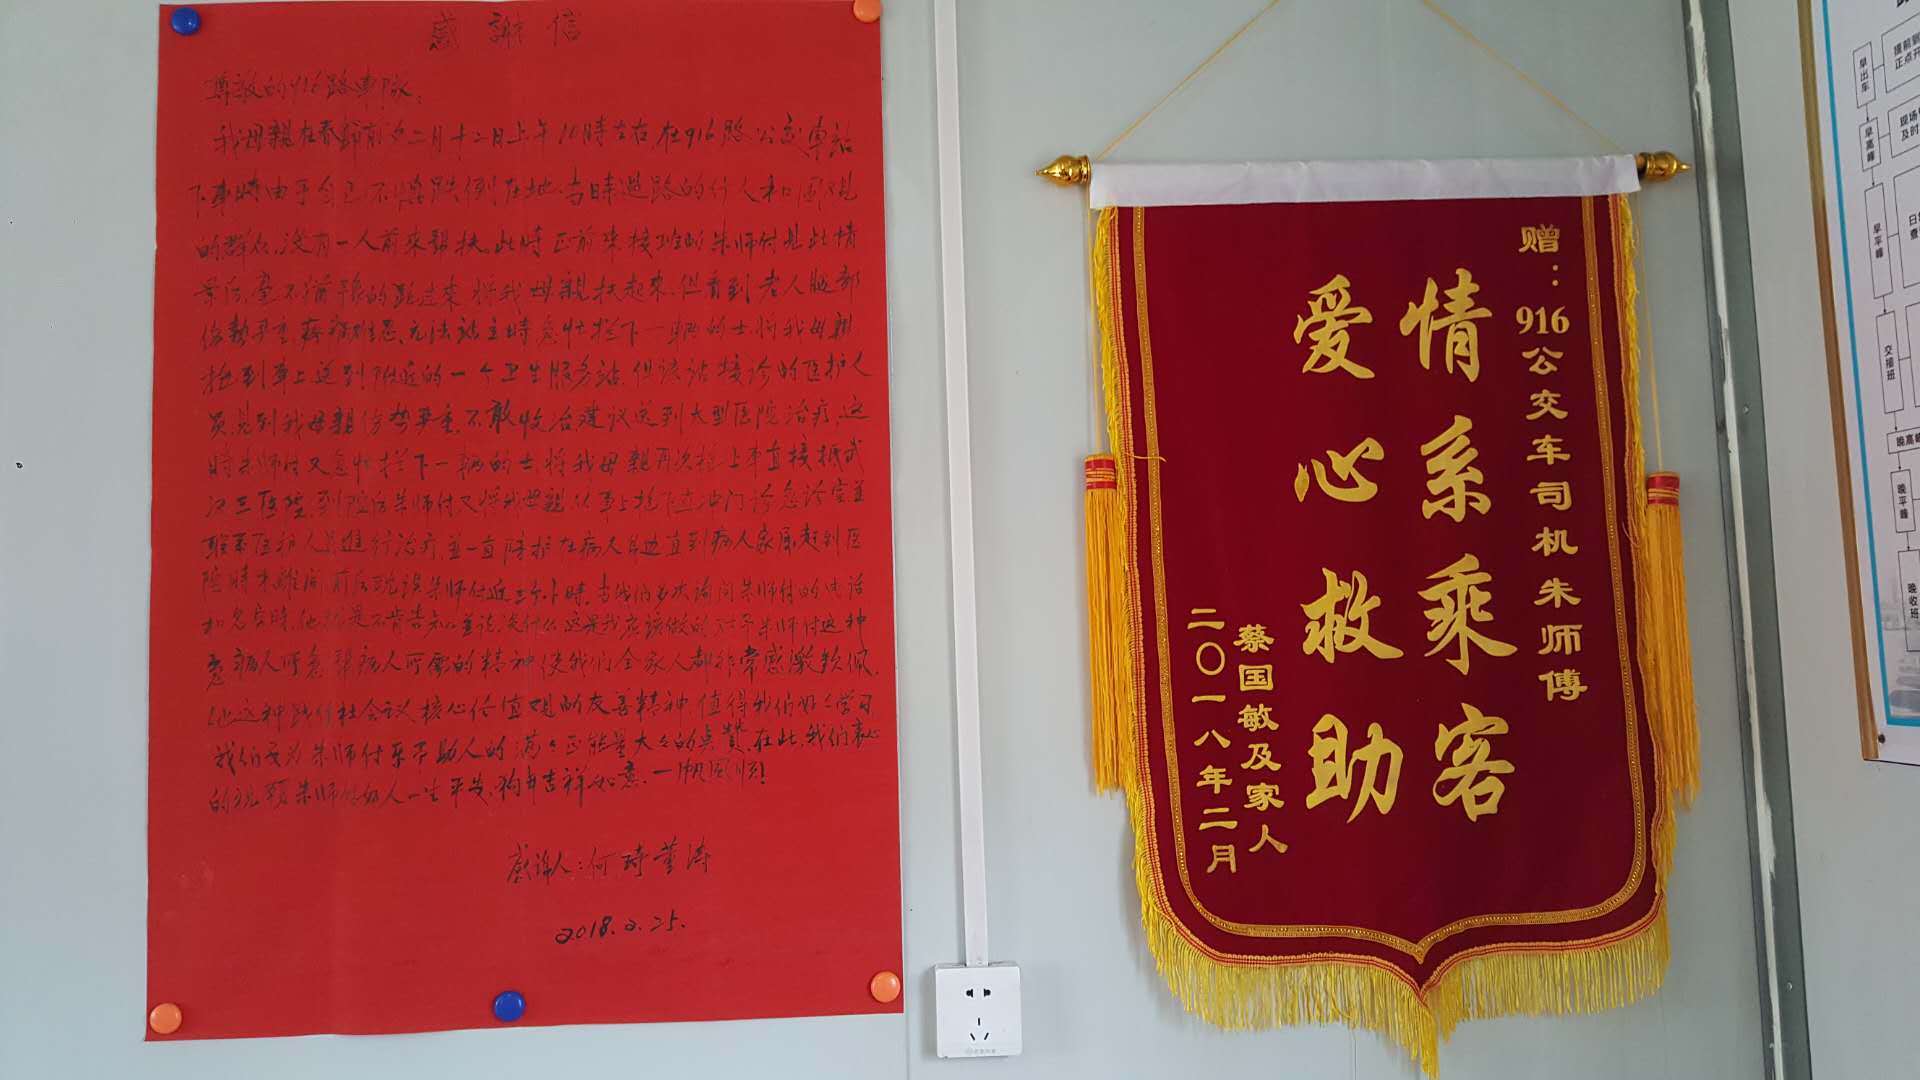 感謝信
尊敬的916路車隊:
我母親在春節前夕二月十二日上午10時左右,在916路公交車站
下車時由于自己不慎跌倒在地,当時過路的行人和围观
的群众,没有一人前來帮扶。此時正前來接班的朱师付見此情
景后,毫不猶豫的跑过來将我母親扶起來,但看到老人腿部
伤势严重,疼痛难忍,无法站立時,急忙拦下一辆的士,将我母親
抱到車上送到附近的一个卫生服务站,但该站接诊的医护人
员,見到我母親伤势严重,不敢收治,建议送到大型医院治疗,这
時朱师付又急忙拦下一辆的士,将我母親再次抱上車直接抵武
汉三医院,到院后朱师付又将我母親从車上抱下直冲门诊急诊室並
联系医护人员進行治疗,並一直陪护在病人身边直到病人家属赶到医
院時才離開,前后耽误朱师付近三个小時,当我们多次询问朱师付的电话
和名字時,他就是不肯告知並说:没什么这是我应该做的,对于朱师付这种
急病人所急帮病人所需的精神使我们全家人都非常感激钦佩,
他这种践行社会主义核心价值观的友善精神,值得我们好好学习,
我们要为朱师付乐于助人的满满正能量大大的点赞,在此,我们衷心
的祝愿朱师付好人一生平安,狗年吉祥如意,一帆風順!
感謝人:何琦 董涛
2018.2.25.
赠:916公交车司机朱师傅
情系乘客
爱心救助
蔡国敏及家人
二〇一八年二月
早出车
早高峰
早平峰
交接班
晚高峰
晚平峰
晚收班